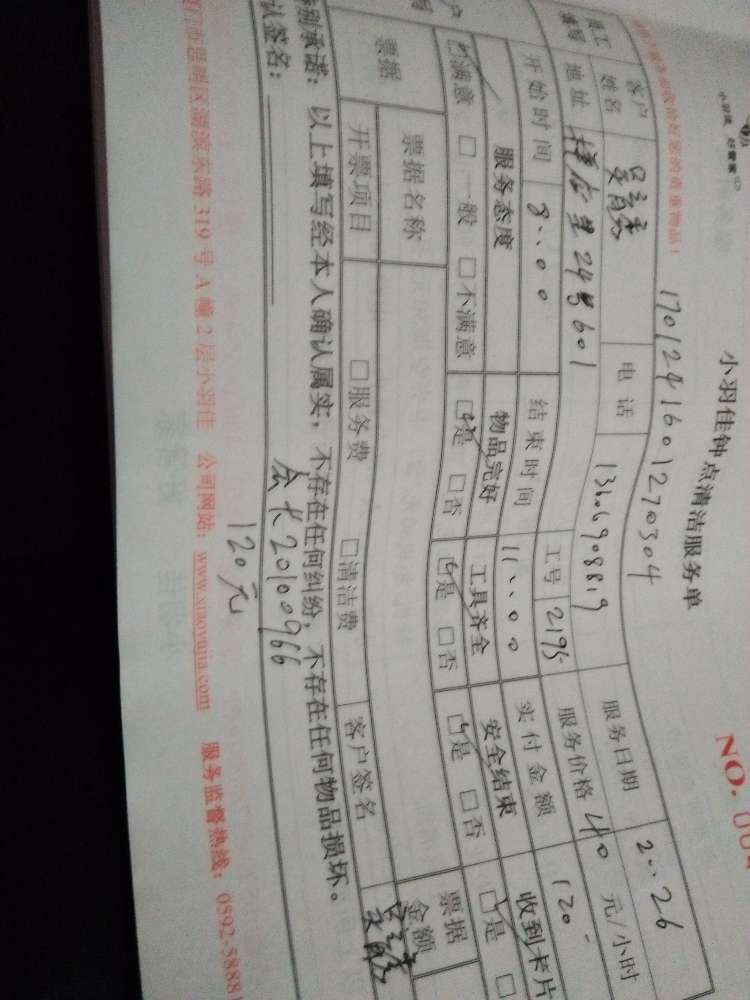 小羽佳 好管家
小羽佳钟点清洁服务单
NO. 004
17012416012270304
客户姓名 电话 13606908819 服务日期 2..26
员工填写 地址 24号601 工号 2195 服务价格 40 元/小时
开始时间 8..00 结束时间 11..00 实付金额 120-
服务态度 物品完好 工具齐全 安全结束 收到卡片
☑满意 □一般 □不满意 ☑是 □否 ☑是 □否 ☑是 □否 ☑是 □
票据 票据名称 票据金额
开票项目 □服务费 □清洁费 客户签名
特别承诺：以上填写经本人确认属实，不存在任何纠纷，不存在任何物品损坏。
认签名： 会长20100966
120元
厦门市思明区湖滨东路319号A幢2层小羽佳 公司网站：www.xiaoyujia.com 服务监督热线：0592-58881